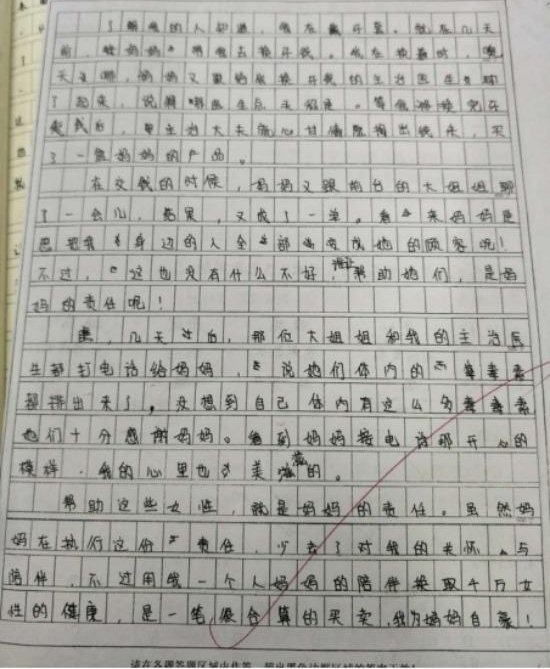 了解我的人知道，我在戴牙套。就在几天
前，妈妈带我去换牙线。我在换着时，
天生哪，妈妈又跟给我换牙线的主治医生聊
了起来，说
我后，那主治大夫就心甘情愿掏出钱来，买
了一盒妈妈的产品。
在交钱的时候，妈妈又跟前台的大姐姐聊
了一会儿，结果，又成了一单。看来妈妈是
想把我身边的人全部变成她的顾客呢！
不过，这也没有什么不好，帮助她们，是妈
妈的责任呢！
果，几天过后，那位大姐姐和我的主治医
生都打电话给妈妈，说她们体内的毒素
都排出来了，没想到自己体内有这么多毒素
她们十分感谢妈妈。看到妈妈接电话那开心的
模样，我的心里也美滋滋的。
帮助这些女性，就是妈妈的责任。虽然妈
妈在执行这份责任，少去了对我的关怀、与
陪伴，不过用我一个人妈妈的陪伴换取千万女
性的健康，是一笔很合算的买卖，我为妈妈自豪！